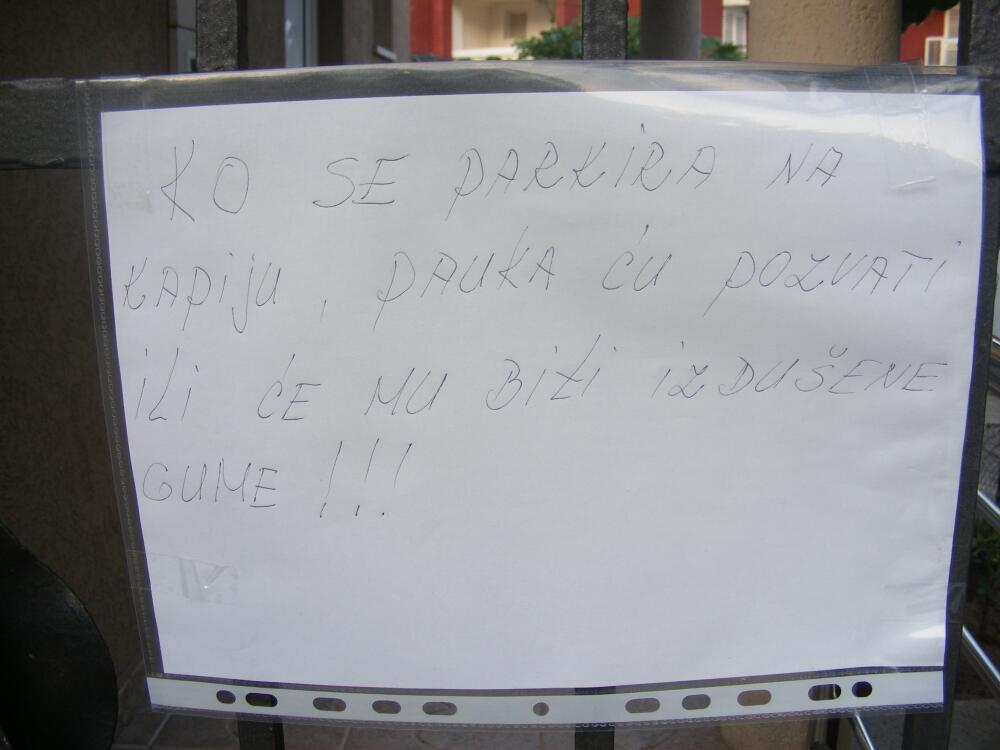 KO SE PARKIRA NA
KAPIJU, PAUKA ĆU POZVATI
ILI ĆE MU BITI IZDUŠENE
GUME !!!